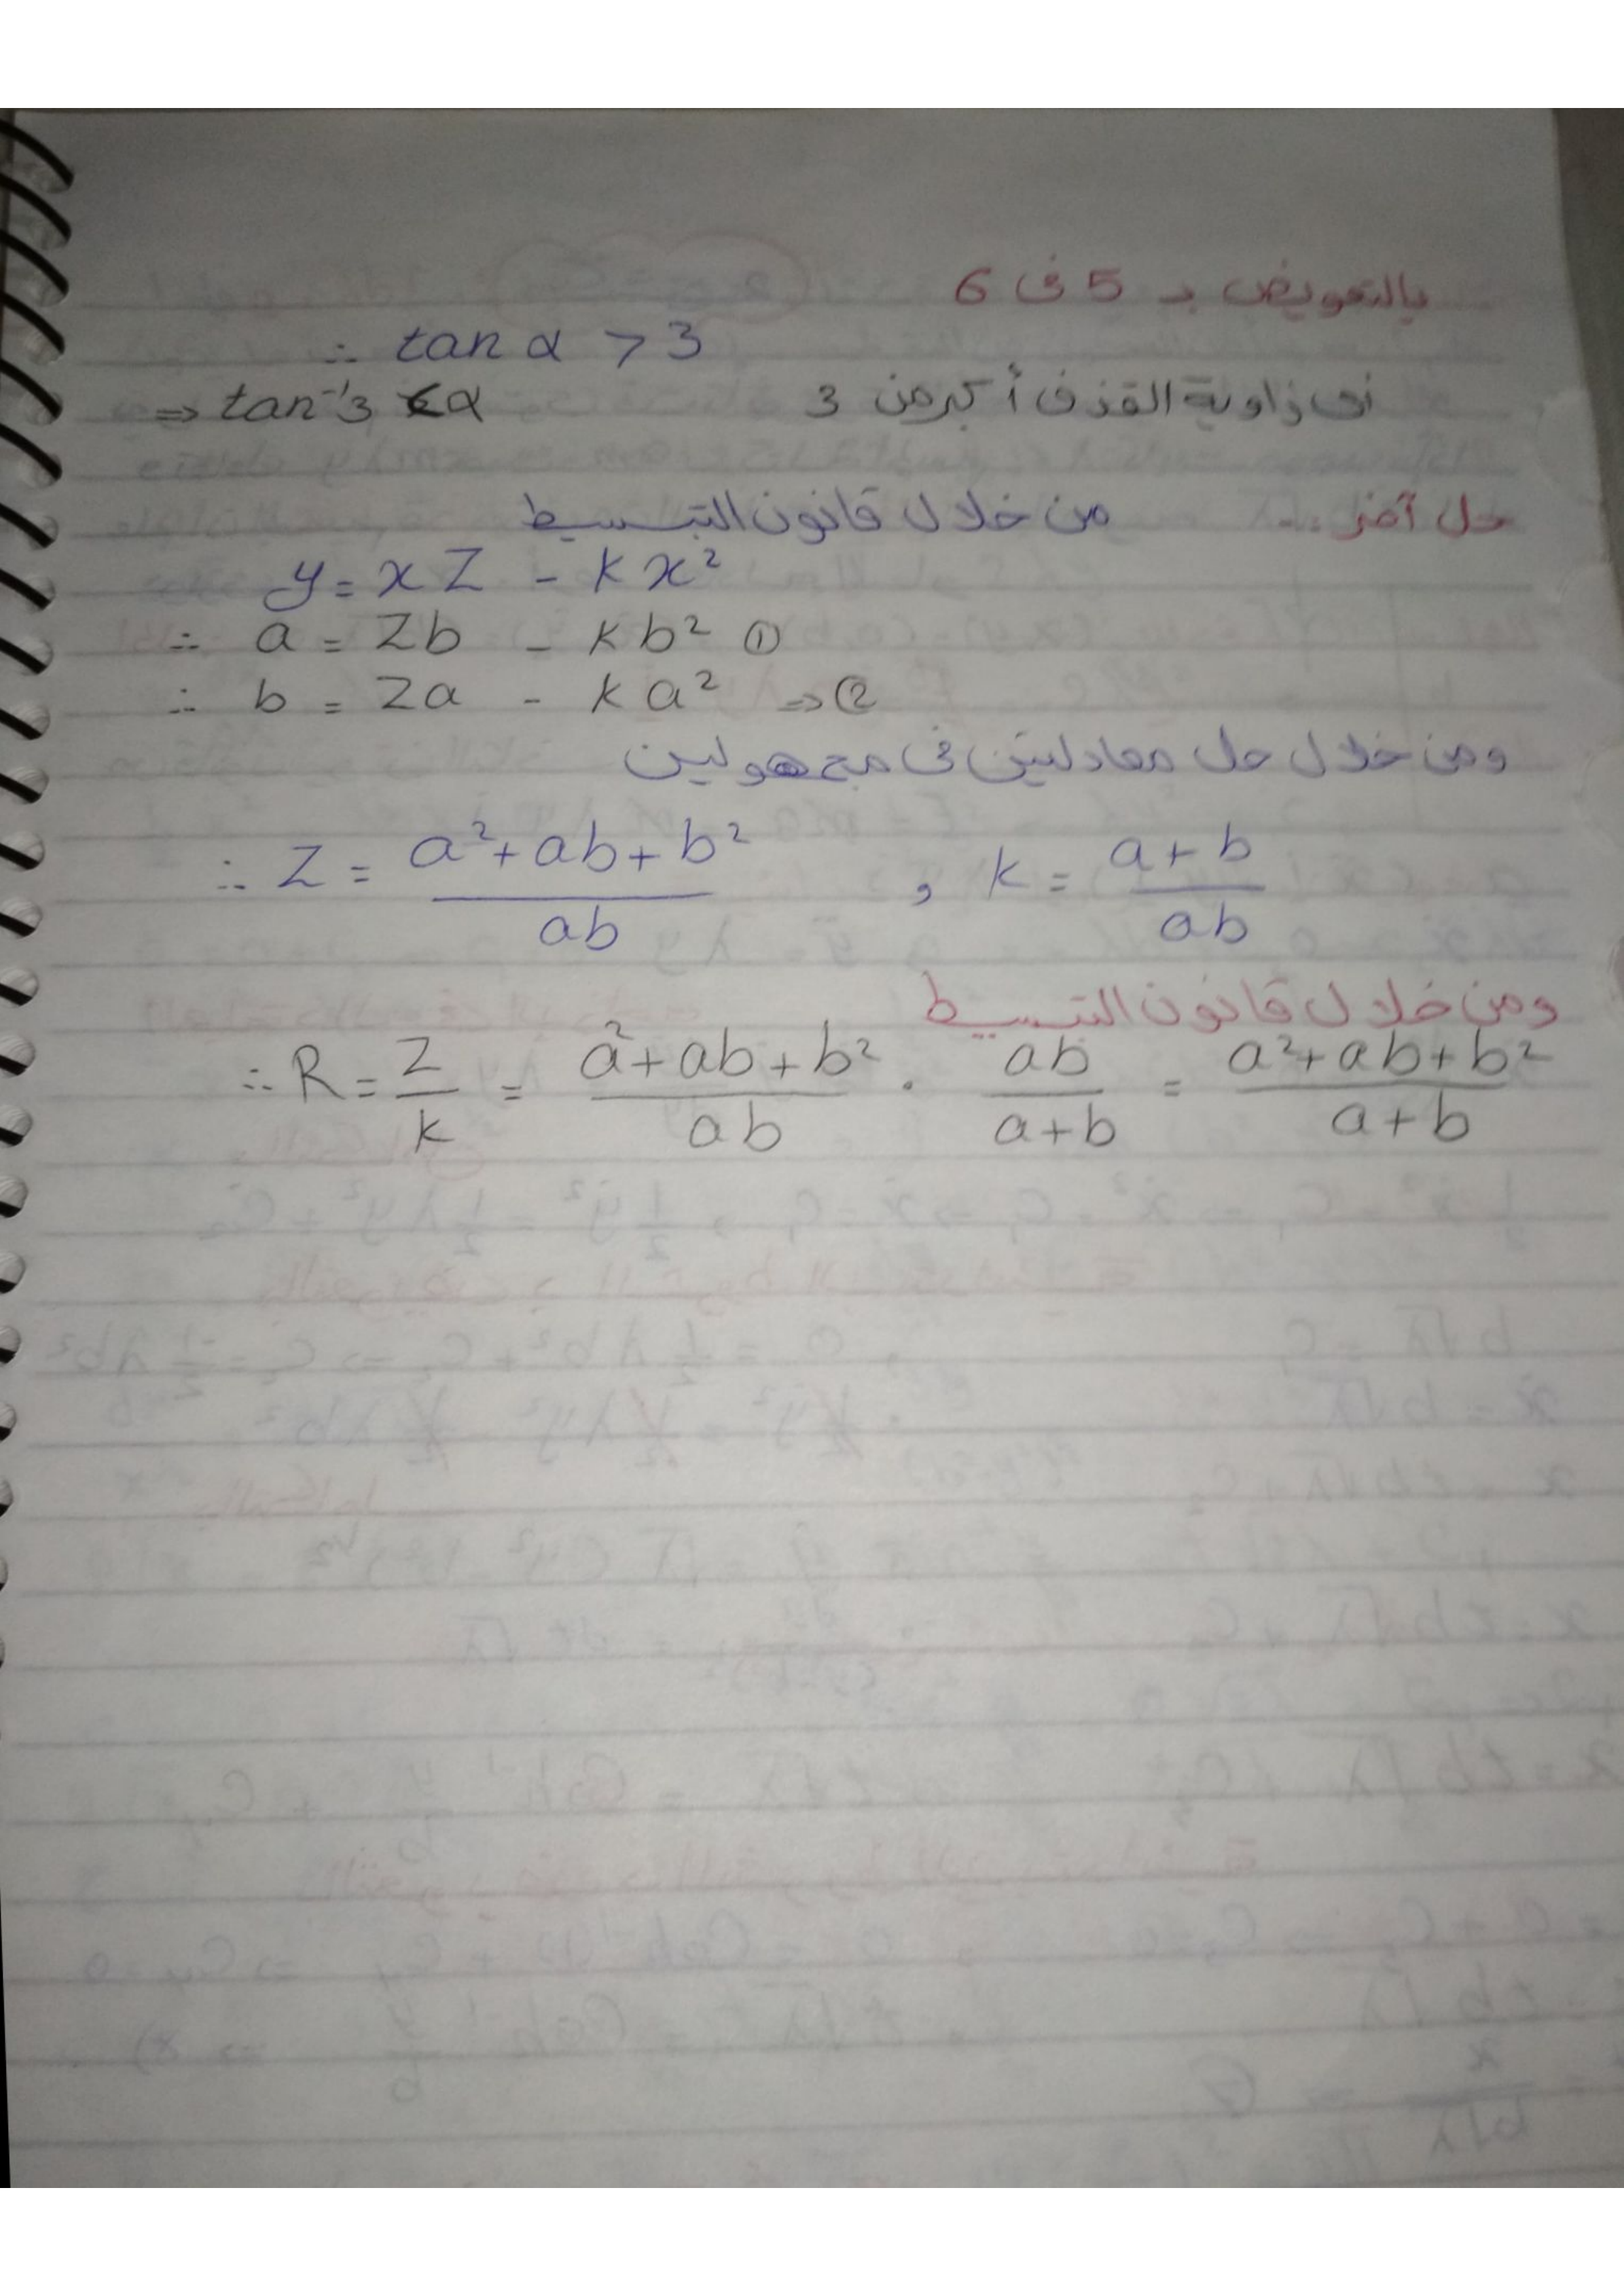 بالتعويض بـ 5 فى 6
∴ tan α > 3
⇒ tan⁻¹3 < α زاوية القذف أكبر من 3
حل آخر :- من خلال قانون التبسيط
y = x Z - k x²
∴ a = Zb - k b² ①
∴ b = Za - k a² ⇒ ②
ومن خلال حل معادلتين فى مجهولين
∴ Z = (a² + ab + b²) / ab , k = (a + b) / ab
ومن خلال قانون التبسيط
∴ R = Z / k = (a² + ab + b²) / ab · ab / (a + b) = (a² + ab + b²) / (a + b)